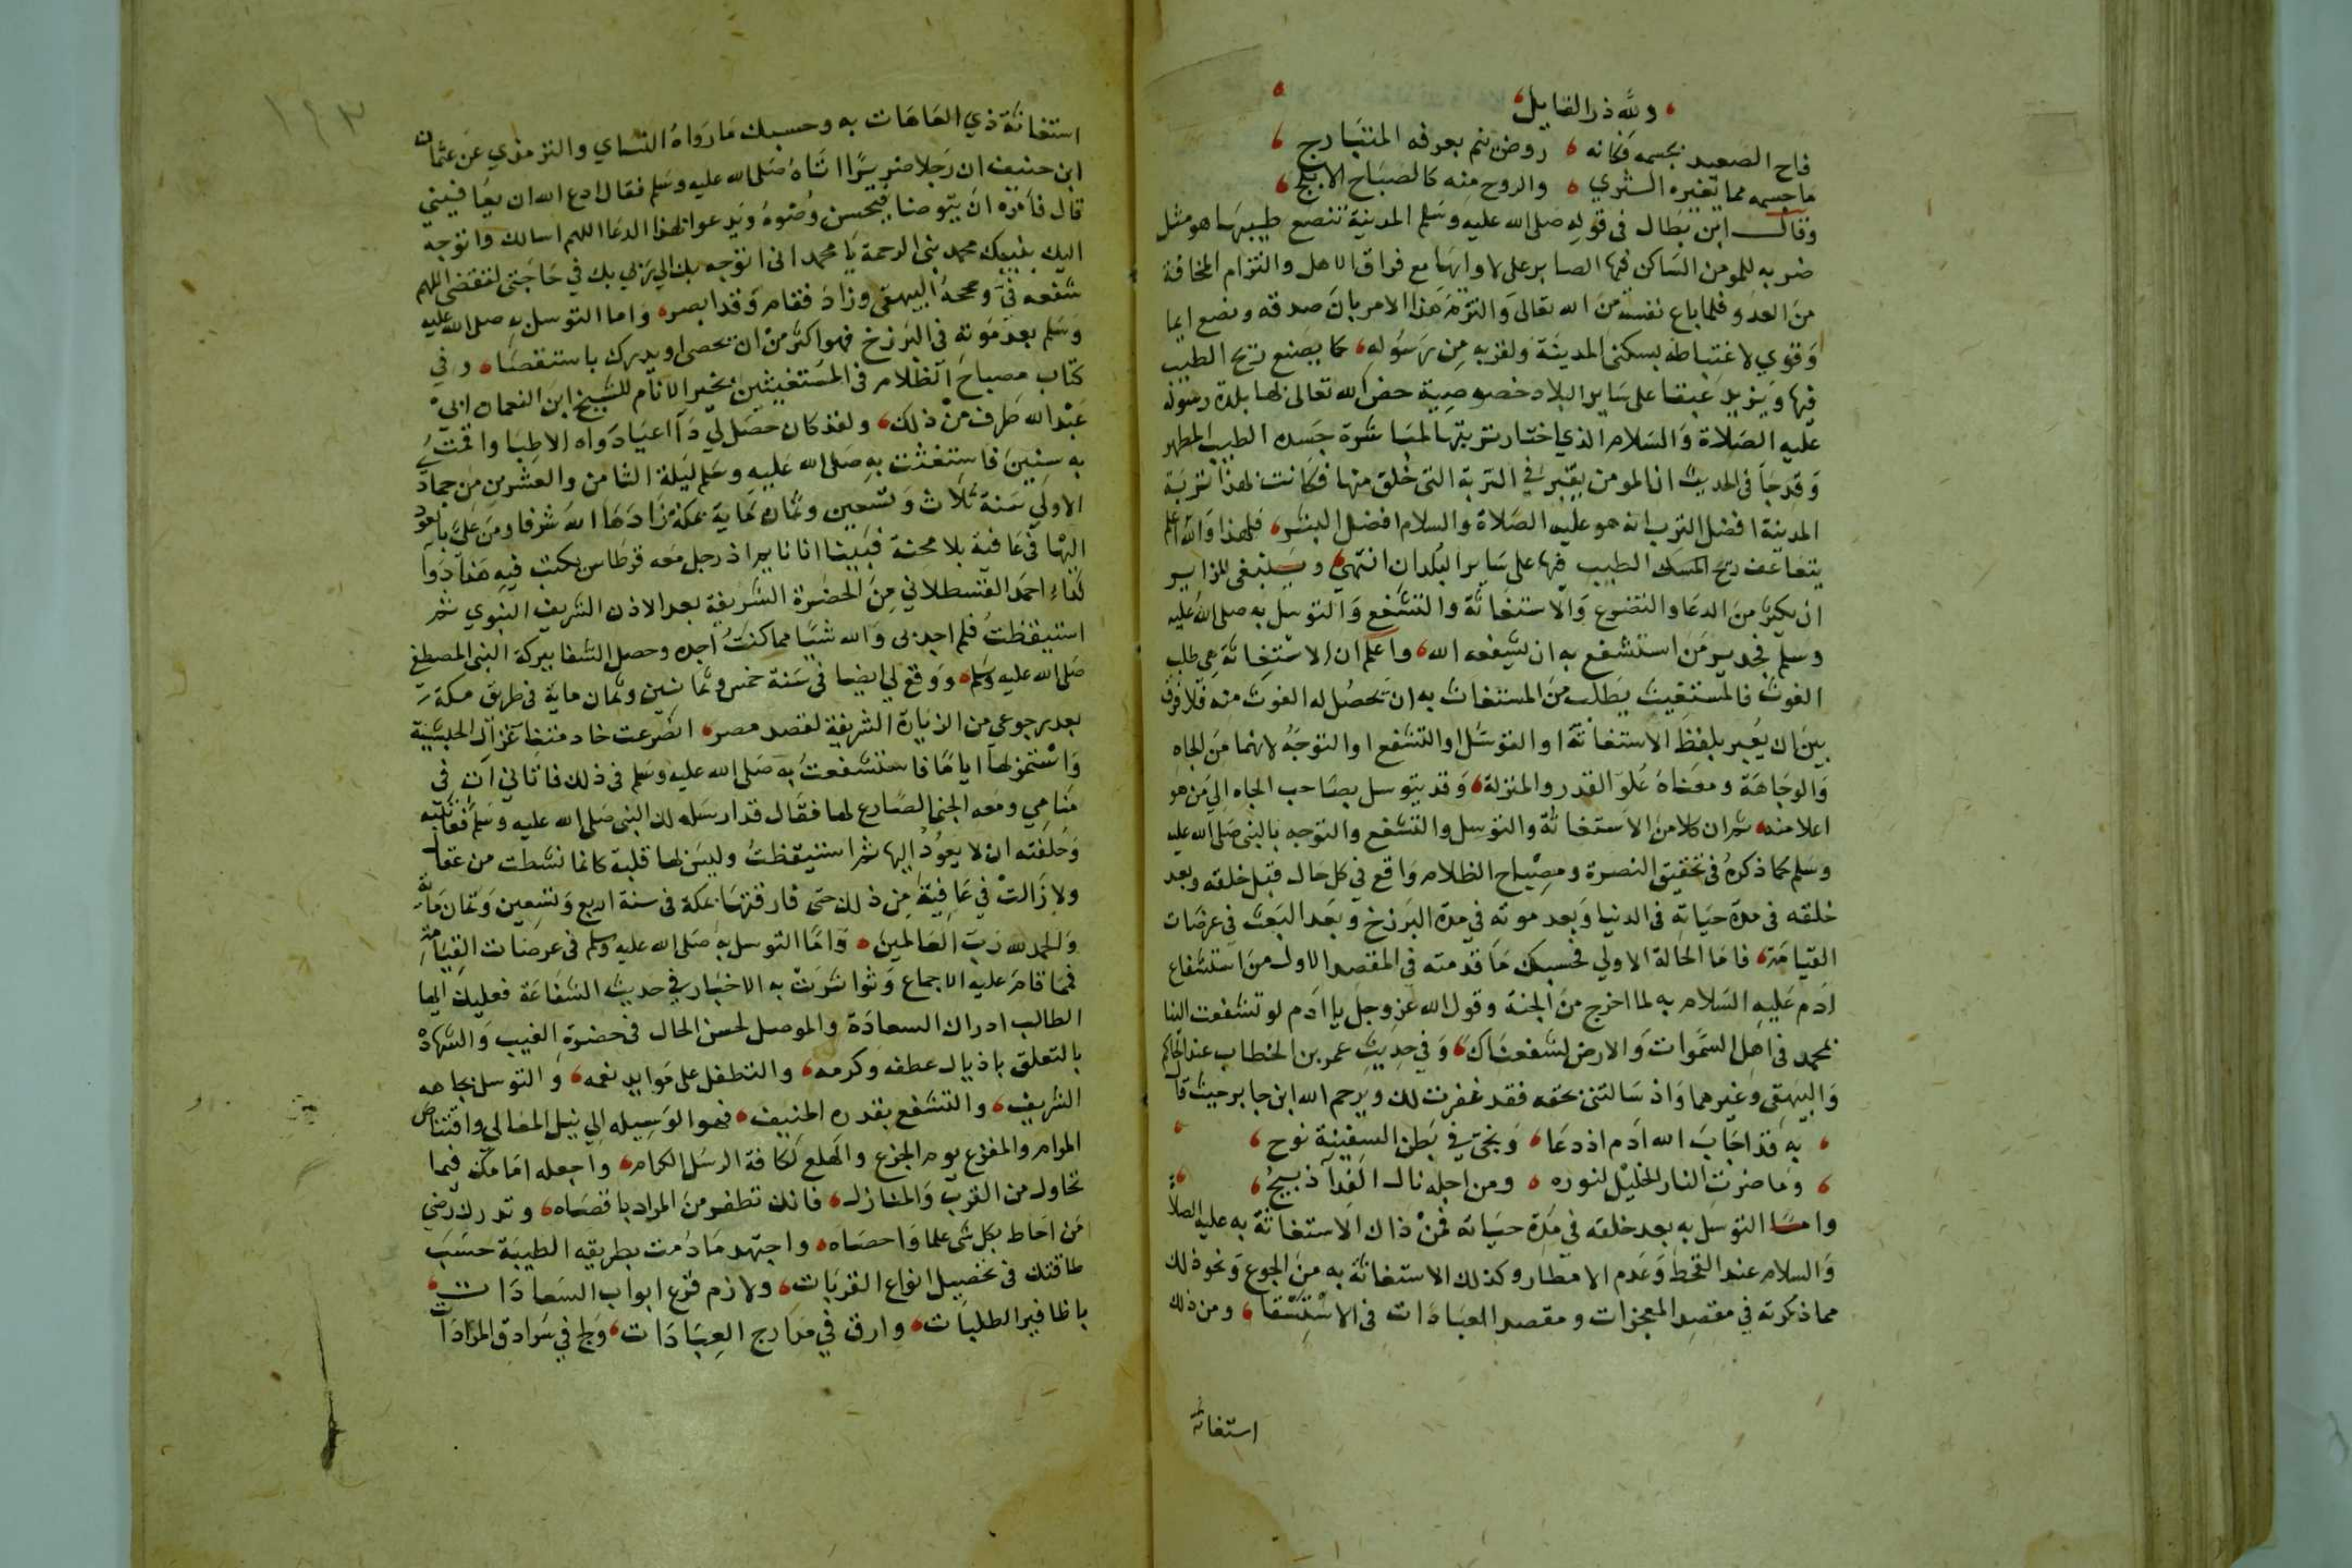 ولله در القايل
فاح الصعيد بجسمه فكانه روض ينم بعرفه المتبارج
ما جسمه مما تغيره الثري والروح منه كالصباح الابلج
وقال ابن بطال في قوله صلى الله عليه وسلم المدينة تنصع طيبها هو مثل
ضربه للمومن الساكن فيها الصابر على لاوايها مع فراق الاهل والتزام المخافة
من العدو فلما باع نفسه من الله تعالى والتزم هذا الامر بان صدقه ونصع ايما
وقوي لاغتباطه بسكنى المدينة ولقربه من رسوله كما يصنع ريح الطيب
فيها ويزيد عبقا على ساير البلاد خصوصية خص الله تعالى بها بلدة رسوله
عليه الصلاة والسلام الذي اختار تربتها لمباشرة جسده الطيب المطهر
وقد جا في الحديث ان المومن يقبر في التربة التي خلق منها فكانت بهذا تربة
المدينة افضل الترب انه هو عليه الصلاة والسلام افضل البشر فلهذا والله اعلم
يتضاعف ريح المسك الطيب فيها على ساير البلدان انتهى وينبغي للزاير
ان يكثر من الدعا والتضرع والاستغاثة والتشفع والتوسل به صلى الله عليه
وسلم فجدير من استشفع به ان يشفعه الله واعلم ان الاستغاثة هي طلب
الغوث فالمستغيث يطلب من المستغاث به ان تحصل له الغوث منه فلا فرق
بين ان يعبر بلفظ الاستغاثة او التوسل او التشفع او التوجه لانهما من الجاه
والوجاهة ومعناه علو القدر والمنزلة وقد يتوسل بصاحب الجاه الي من هو
اعلا منه ثم ان كلا من الاستغاثة والتوسل والتشفع والتوجه بالنبي صلى الله عليه
وسلم كما ذكره في تحقيق النصرة ومصباح الظلام واقع في كل حال قبل خلقه وبعد
خلقه في مدة حياته في الدنيا وبعد موته في مدة البرزخ وبعد البعث في عرصات
القيامة فاما الحالة الاولي فحسبك ما قدمته في المقصد الاول من استشفاع
ادم عليه السلام به لما اخرج من الجنة وقول الله عز وجل يا ادم لو تشفعت الينا
بمحمد في اهل السموات والارض لشفعناك وفي حديث عمر بن الخطاب عند الحاكم
والبيهقي وغيرهما واذ سالتني بحقه فقد غفرت لك ويرحم الله ابن جابر حيث قا
به قد اجاب الله ادم اذ دعا ونجي في بطن السفينة نوح
وما ضرت النار الخليل لنوره ومن اجله نال الفدا ذبيح
واما التوسل به بعد خلقه في مدة حياته فمن ذاك الاستغاثة به عليه الصلا
والسلام عند القحط وعدم الامطار وكذلك الاستغاثة به من الجوع ونحو ذلك
مما ذكرته في مقصد المعجزات ومقصد العبادات في الاستسقا ومن ذلك
استغاثة
١٤٣
استغاثة ذي العاهات به وحسبك ما رواه النساي والترمذي عن عثمان
ابن حنيف ان رجلا ضريرا اتاه صلى الله عليه وسلم فقال ادع الله ان يعافيني
قال فامره ان يتوضا فيحسن وضوه ويدعوا بهذا الدعا اللهم اسالك واتوجه
اليك بنبيك محمد نبي الرحمة يا محمد اني اتوجه بك الي ربي بك في حاجتي لتقضى اللهم
شفعه في وصححه البيهقي وزاد فقام وقد ابصر واما التوسل به صلى الله عليه
وسلم بعد موته في البرزخ فهو اكثر من ان يحصى او يدرك باستقصا وفي
كتاب مصباح الظلام في المستغيثين بخير الانام للشيخ ابن النعمان ابي
عبد الله طرف من ذلك ولقد كان حصل لي دآ اعيا دواه الاطبا واقمت
به سنين فاستغثت به صلى الله عليه وسلم ليلة الثامن والعشرين من جماد
الاولى سنة ثلاث وتسعين وثمان ماية بمكة زادها الله شرفا ومن علي بالعود
اليها في عافية بلا محنة فبينا انا نايم اذ رجل معه قرطاس يكتب فيه هذا دوآ
لداء احمد القسطلاني من الحضرة الشريفة بعد الاذن الشريف النبوي ثم
استيقظت فلم اجد بي والله شيا مما كنت اجده وحصل الشفا ببركة النبي المصطفى
صلى الله عليه وسلم ووقع لي ايضا في سنة خمس وثمانين وثمان ماية في طريق مكة
بعد رجوعي من الزيارة الشريفة لقصد مصر انصرعت خادمتنا غزال الحبشية
واستمر بها اياما فاستشفعت به صلى الله عليه وسلم في ذلك فاتاني ات في
منامي ومعه الجني الصارع لها فقال قد ارسله لك النبي صلى الله عليه وسلم فعاتبته
وحلفته ان لا يعود اليها ثم استيقظت وليس بها قلبة كانما نشطت من عقا
ولا زالت في عافية من ذلك حتى فارقتها بمكة في سنة اربع وتسعين وثمان ماية
والحمد لله رب العالمين واما التوسل به صلى الله عليه وسلم في عرصات القيامة
فمما قام عليه الاجماع وتواترت به الاخبار في حديث الشفاعة فعليك ايها
الطالب ادراك السعادة والموصل لحسن الحال في حضرة الغيب والشهادة
بالتعلق باذيال عطفه وكرمه والتطفل على موايد نعمه والتوسل بجاهه
الشريف والتشفع بقدره المنيف فهو الوسيله الي نيل المعالي واقتناص
المرام والمفزع يوم الجزع والهلع لكافة الرسل الكرام واجعله امامك فيما
تحاول من القرب والمنازل فانك تظفر من المراد باقصاه وتدرك رضي
من احاط بكل شي علما واحصاه واجتهد ما دمت بطريقه الطيبة حسب
طاقتك في تحصيل انواع القربات ولازم قرع ابواب السعادات
باظافير الطلبات وارق في مدارج العبادات ولج في سرادق المرادات